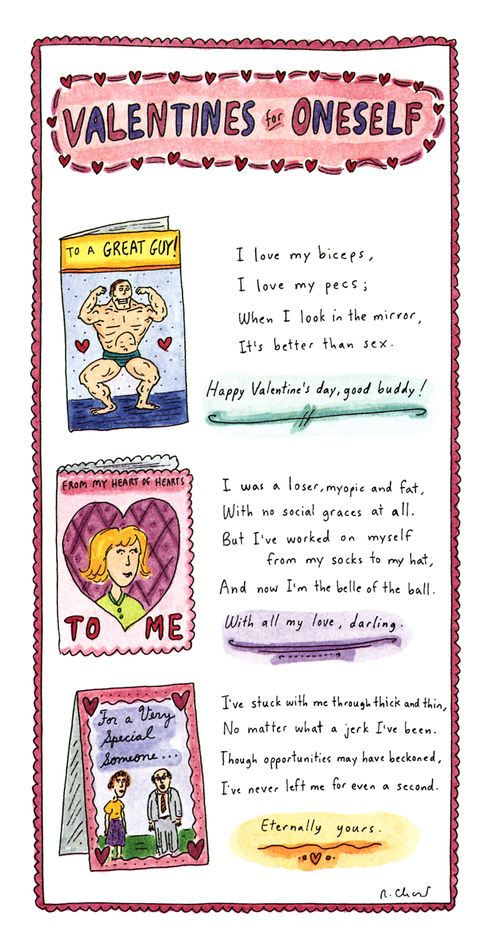 VALENTINES for ONESELF
TO A GREAT GUY!
I love my biceps,
I love my pecs;
When I look in the mirror,
It's better than sex.
Happy Valentine's day, good buddy!
FROM MY HEART OF HEARTS
TO ME
I was a loser, myopic and fat,
With no social graces at all.
But I've worked on myself
from my socks to my hat,
And now I'm the belle of the ball.
With all my love, darling.
For a Very
Special
Someone...
I've stuck with me through thick and thin,
No matter what a jerk I've been.
Though opportunities may have beckoned,
I've never left me for even a second.
Eternally yours.
R. Chast